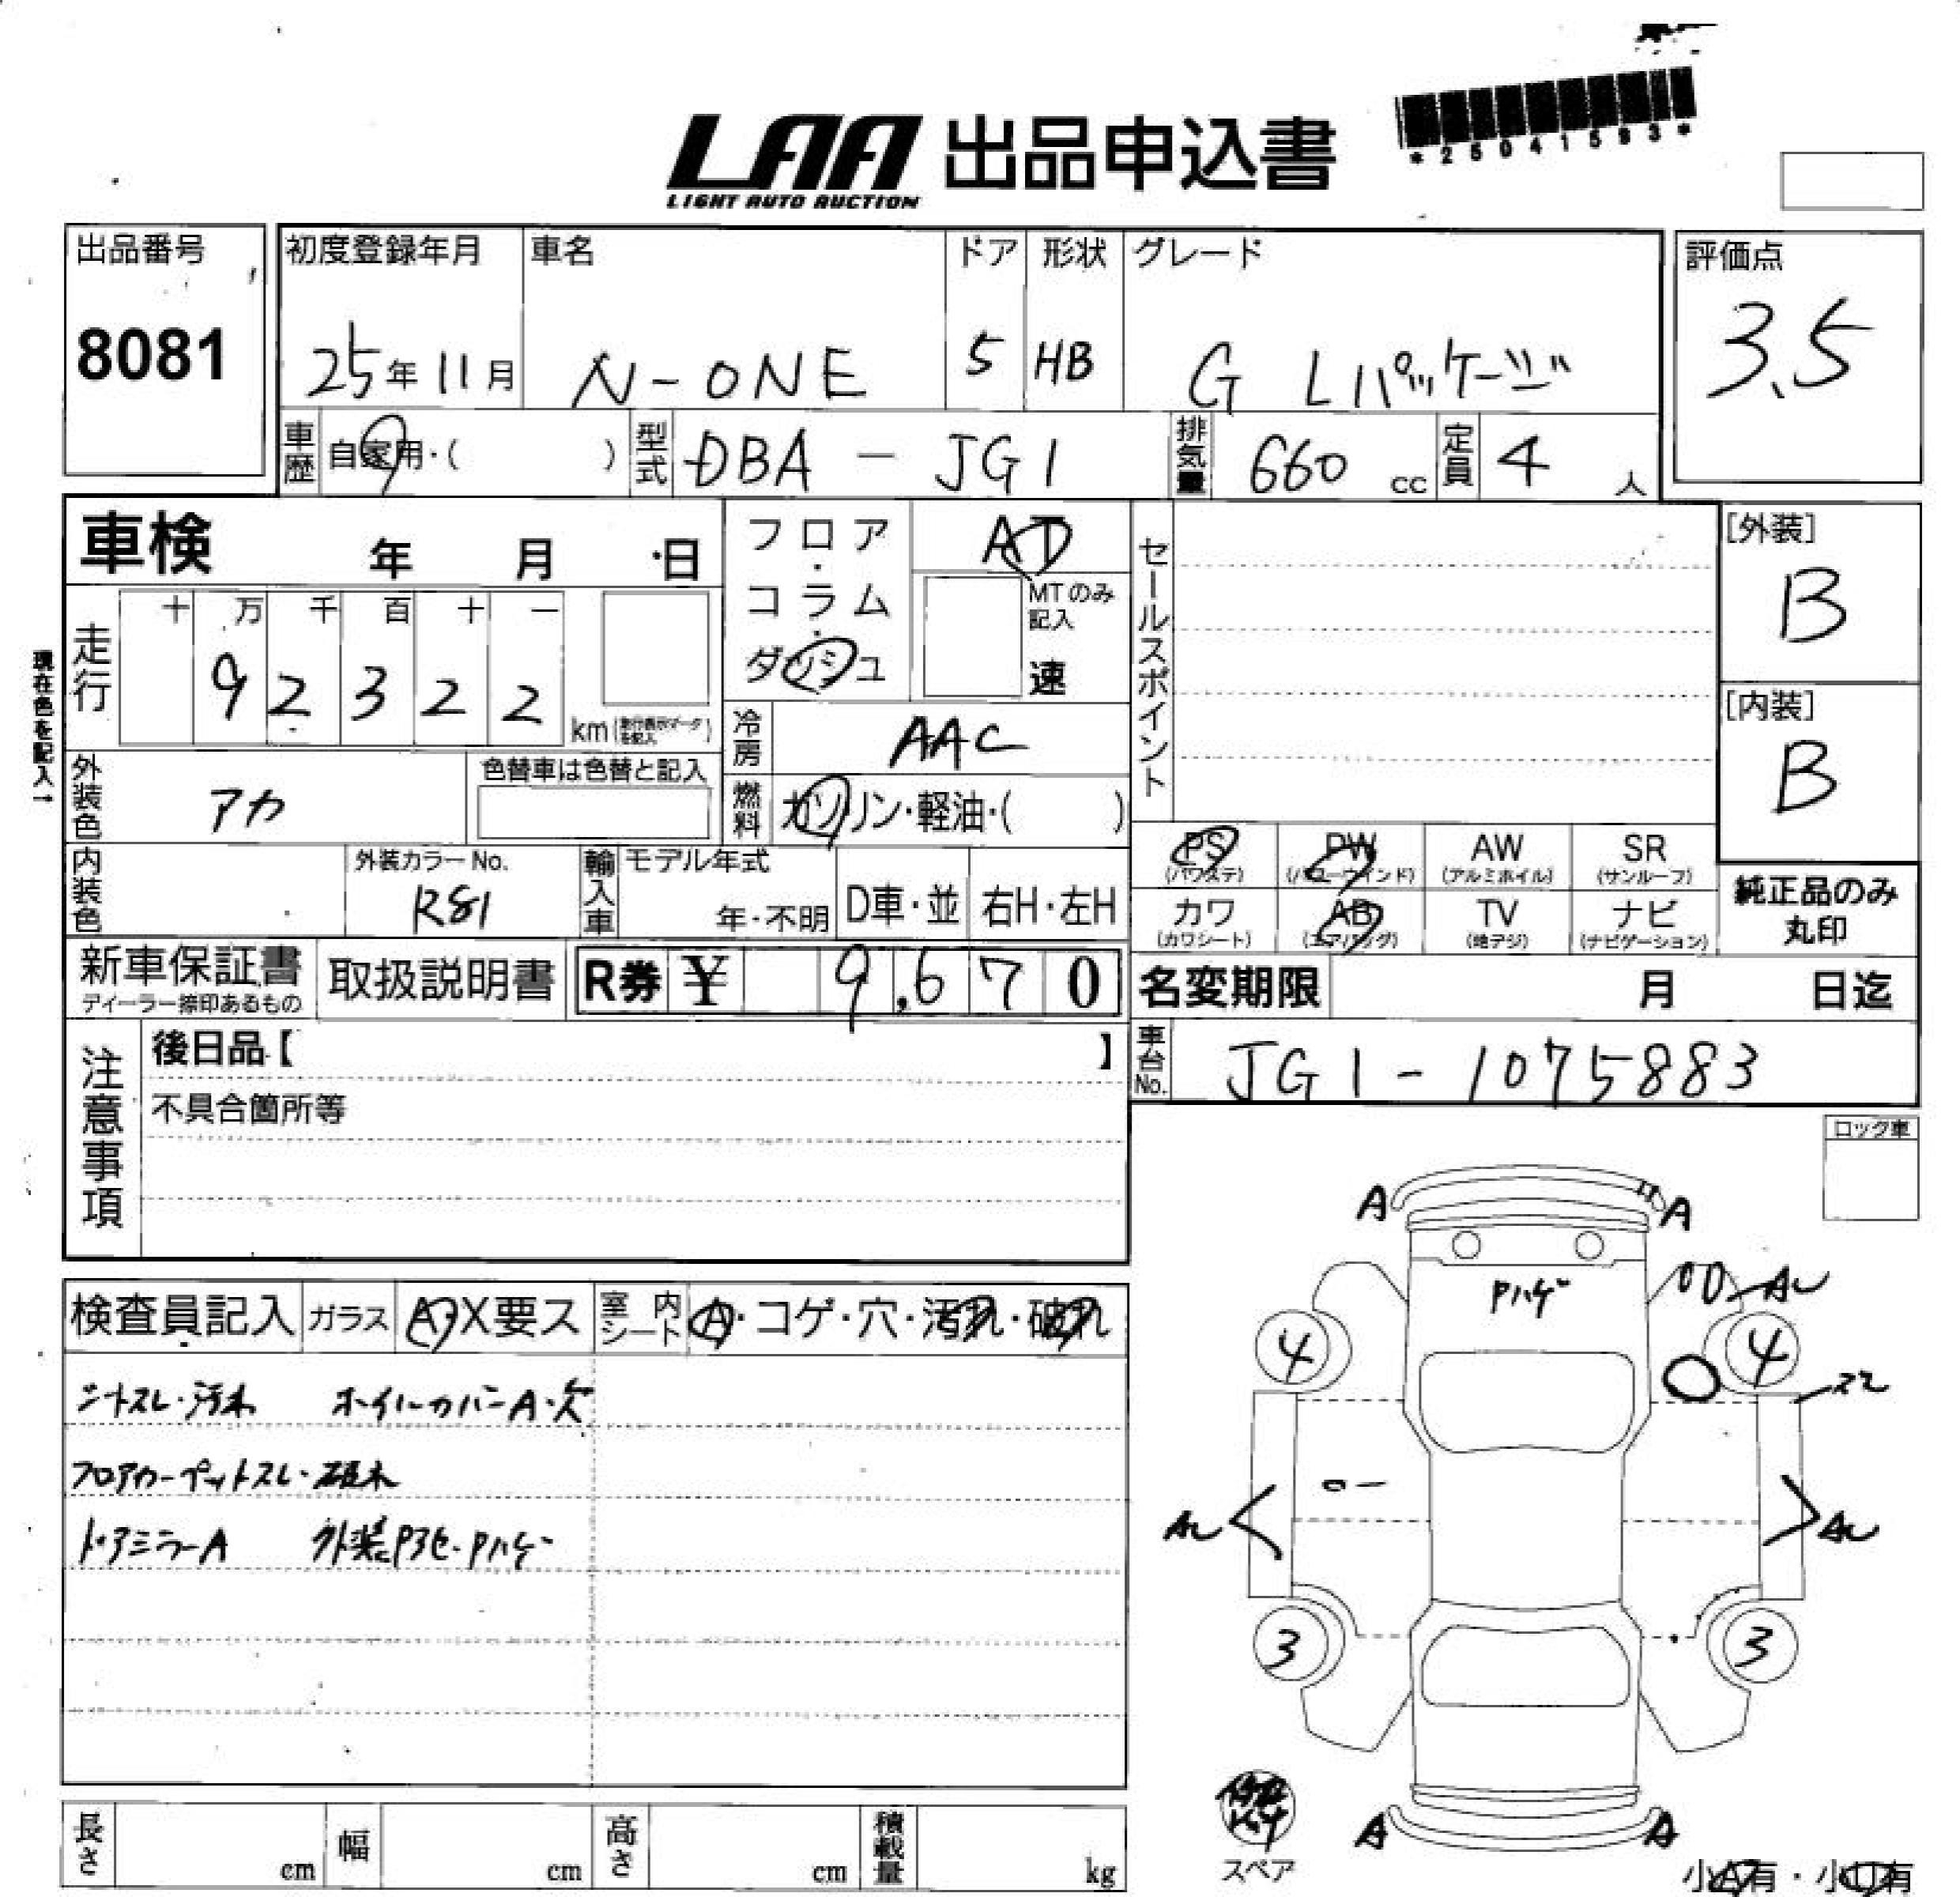 LAA 出品申込書
LIGHT AUTO AUCTION
*25041593*
出品番号
8081
初度登録年月
25年11月
車名
N-ONE
ドア
5
形状
HB
グレード
G Lパッケージ
評価点
3.5
車歴
自家用・( )
型式
DBA-JG1
排気量
660 cc
定員
4 人
車検 年 月 日
フロア・コラム・ダッシュ
AT
MTのみ記入
速
セールスポイント
[外装]
B
[内装]
B
現在色を記入→
走行
十 万 千 百 十 一
9 2 3 2 2
km (走行表示マークを記入)
冷房
AAC
外装色
アカ
色替車は色替と記入
燃料
ガソリン・軽油・( )
内装色
外装カラーNo.
R81
輸入車
モデル年式
年・不明
D車・並
右H・左H
PS (パワステ)
PW (パワーウインド)
AW (アルミホイル)
SR (サンルーフ)
カワ (カワシート)
AB (エアバッグ)
TV (地デジ)
ナビ (ナビゲーション)
純正品のみ丸印
新車保証書
ディーラー捺印あるもの
取扱説明書
R券 ¥ 9,670
名変期限 月 日迄
注意事項
後日品【 】
不具合箇所等
車台No.
JG1-1075883
ロック車
検査員記入
ガラス
A・X要ス
室内シート
A・コゲ・穴・汚れ・破れ
シートスレ・汚れ ホイルカバーA・欠
フロアカーペットスレ・破れ
ドアミラーA 外装Pアセ・Pハゲ
A A
Pハゲ
AU
4 4
スレ
AU AU
3 3
A A
スペア
小A有・小U有
長さ cm
幅 cm
高さ cm
積載量 kg